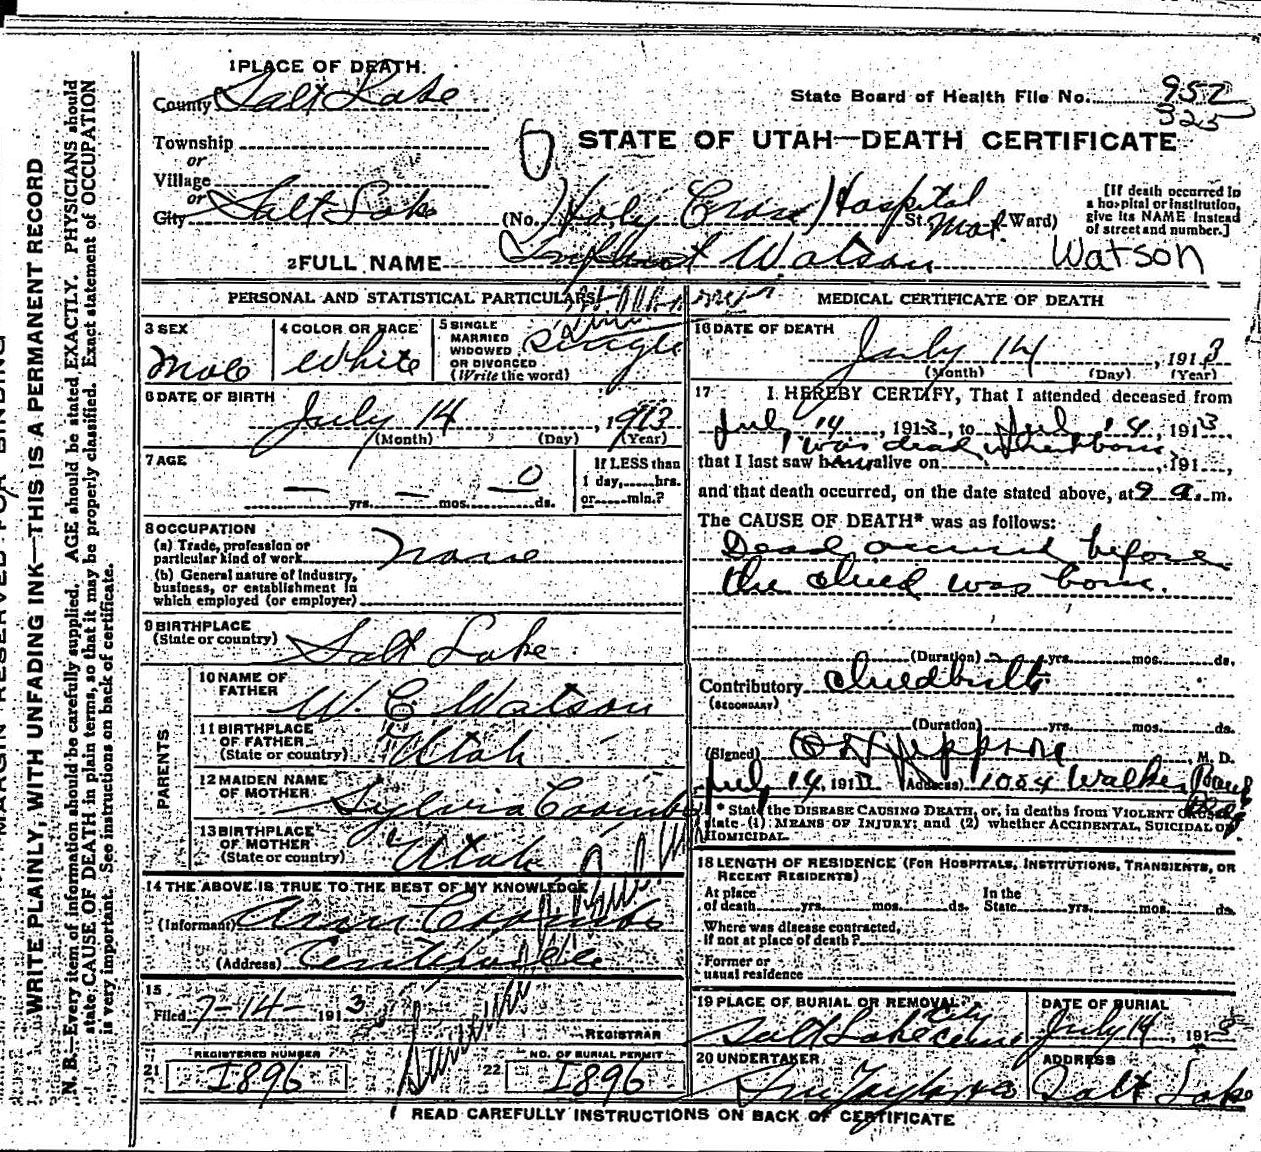 1 PLACE OF DEATH
County Salt Lake
State Board of Health File No. 952
325
Township
or
Village
or
City Salt Lake
STATE OF UTAH—DEATH CERTIFICATE
(No. Holy Cross Hospital St. Mat. Ward)
[If death occurred in a hospital or institution, give its NAME instead of street and number.]
2 FULL NAME Infant Watson
Watson
PERSONAL AND STATISTICAL PARTICULARS
3 SEX
Male
4 COLOR OR RACE
White
5 SINGLE MARRIED WIDOWED OR DIVORCED (Write the word)
Single
6 DATE OF BIRTH
July 14, 1913
(Month) (Day) (Year)
7 AGE
— yrs. — mos. 0 ds.
If LESS than 1 day, hrs. or min.?
8 OCCUPATION
(a) Trade, profession or particular kind of work None
(b) General nature of industry, business, or establishment in which employed (or employer)
9 BIRTHPLACE
(State or country) Salt Lake
PARENTS
10 NAME OF FATHER W. C. Watson
11 BIRTHPLACE OF FATHER (State or country) Utah
12 MAIDEN NAME OF MOTHER Sylvia Coombs
13 BIRTHPLACE OF MOTHER (State or country) Utah
14 THE ABOVE IS TRUE TO THE BEST OF MY KNOWLEDGE
(Informant) Coombs
(Address) Centerville
15
Filed 7-14- 1913
REGISTRAR
21 REGISTERED NUMBER
1896
22 NO. OF BURIAL PERMIT
1896
MEDICAL CERTIFICATE OF DEATH
16 DATE OF DEATH
July 14, 1913
(Month) (Day) (Year)
17 I HEREBY CERTIFY, That I attended deceased from
July 14, 1913, to July 14, 1913,
was dead when born
that I last saw h alive on , 191 ,
and that death occurred, on the date stated above, at 9 a. m.
The CAUSE OF DEATH* was as follows:
Dead occured before
the child was born.
(Duration) yrs. mos. ds.
Contributory Childbirth
(SECONDARY)
(Duration) yrs. mos. ds.
(Signed) Jeppson, M. D.
July 14, 191 (Address) 1004 Walker Bank Bldg.
* State the DISEASE CAUSING DEATH, or, in deaths from VIOLENT CAUSES,
state (1) MEANS OF INJURY; and (2) whether ACCIDENTAL, SUICIDAL OR
HOMICIDAL.
18 LENGTH OF RESIDENCE (FOR HOSPITALS, INSTITUTIONS, TRANSIENTS, OR RECENT RESIDENTS)
At place of death yrs. mos. ds. In the State yrs. mos. ds.
Where was disease contracted, if not at place of death?
Former or usual residence
19 PLACE OF BURIAL OR REMOVAL
Salt Lake City Cem
DATE OF BURIAL
July 14, 1913
20 UNDERTAKER
ADDRESS
Salt Lake
READ CAREFULLY INSTRUCTIONS ON BACK OF CERTIFICATE
MARGIN RESERVED FOR BINDING
WRITE PLAINLY, WITH UNFADING INK—THIS IS A PERMANENT RECORD
N. B.—Every item of information should be carefully supplied. AGE should be stated EXACTLY. PHYSICIANS should
state CAUSE OF DEATH in plain terms, so that it may be properly classified. Exact statement of OCCUPATION
is very important. See instructions on back of certificate.